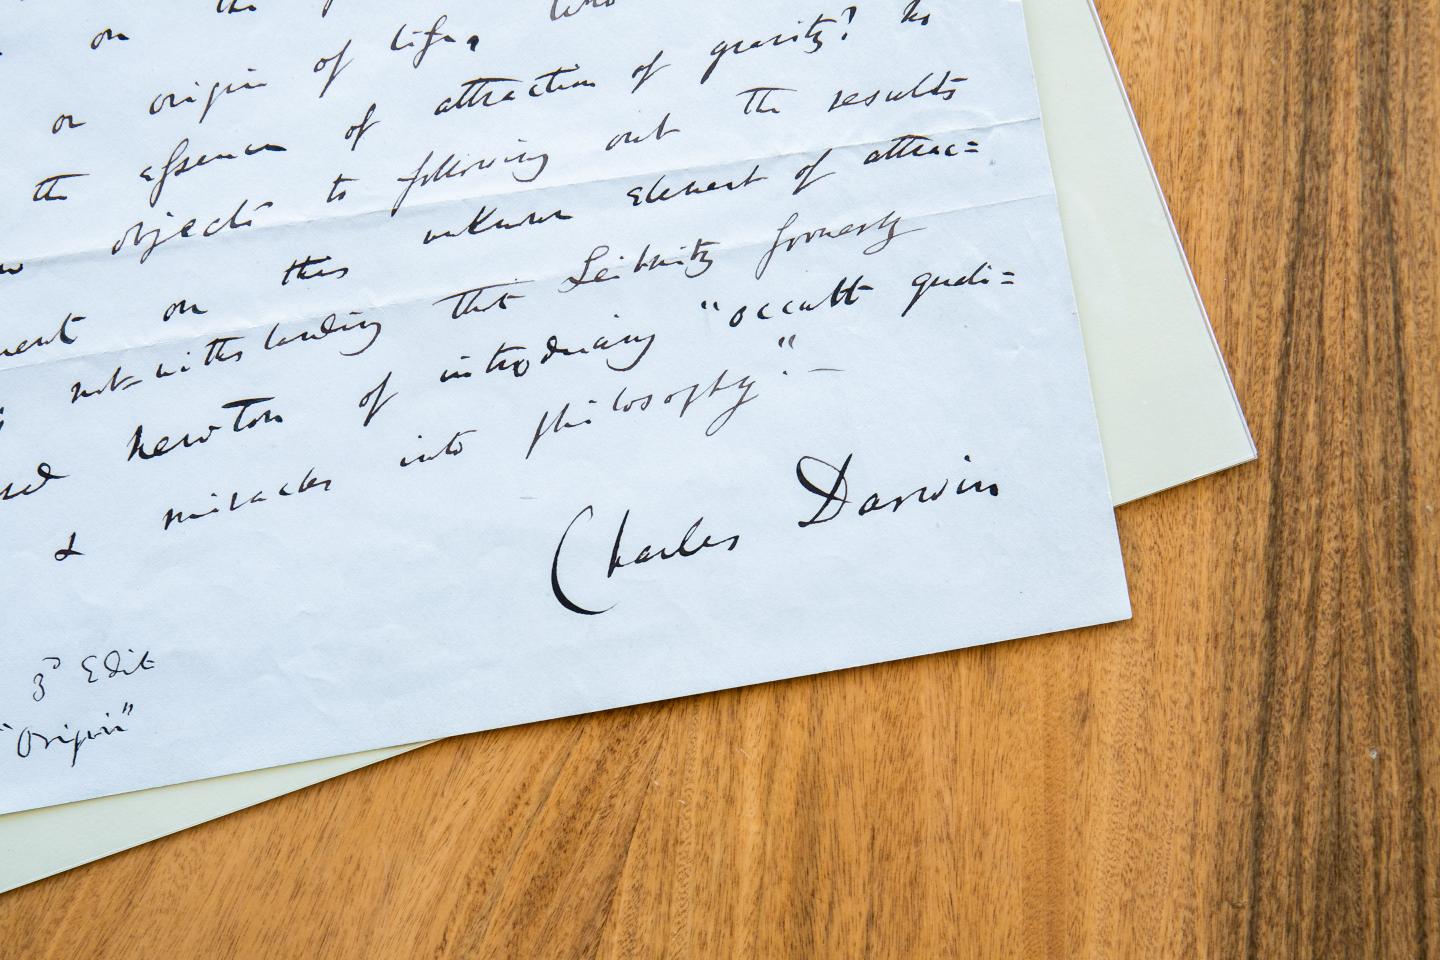 on the
or origin of life. Who
the essence of attraction of gravity? No
objects to following out the results
on this unknown element of attrac=
not-withstanding that Leibnitz formerly
sed Newton of introducing "occult quali=
& miracles into philosophy." —
Charles Darwin
3d Edit
"Origin"